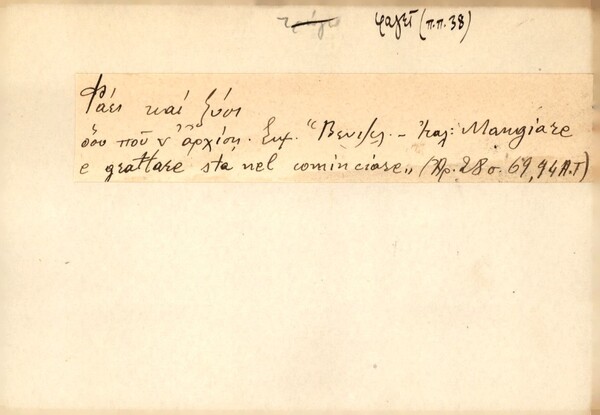 τρώγω φαγεῖ (π.π. 38)
Φάει καί ξύσι
ὅσου ποῦ ν' ἀρχίση. Σημ. "Βενιζελ. - Ἰταλ: Mangiare
e grattare sta nel cominciare,, (Ἀρ. 28 σ. 69, 94 Α.Τ)